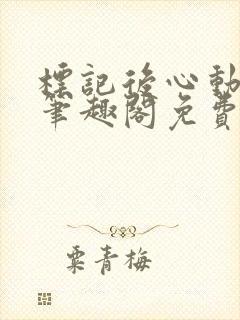 標記後心動
筆趣閣免費
粟青梅